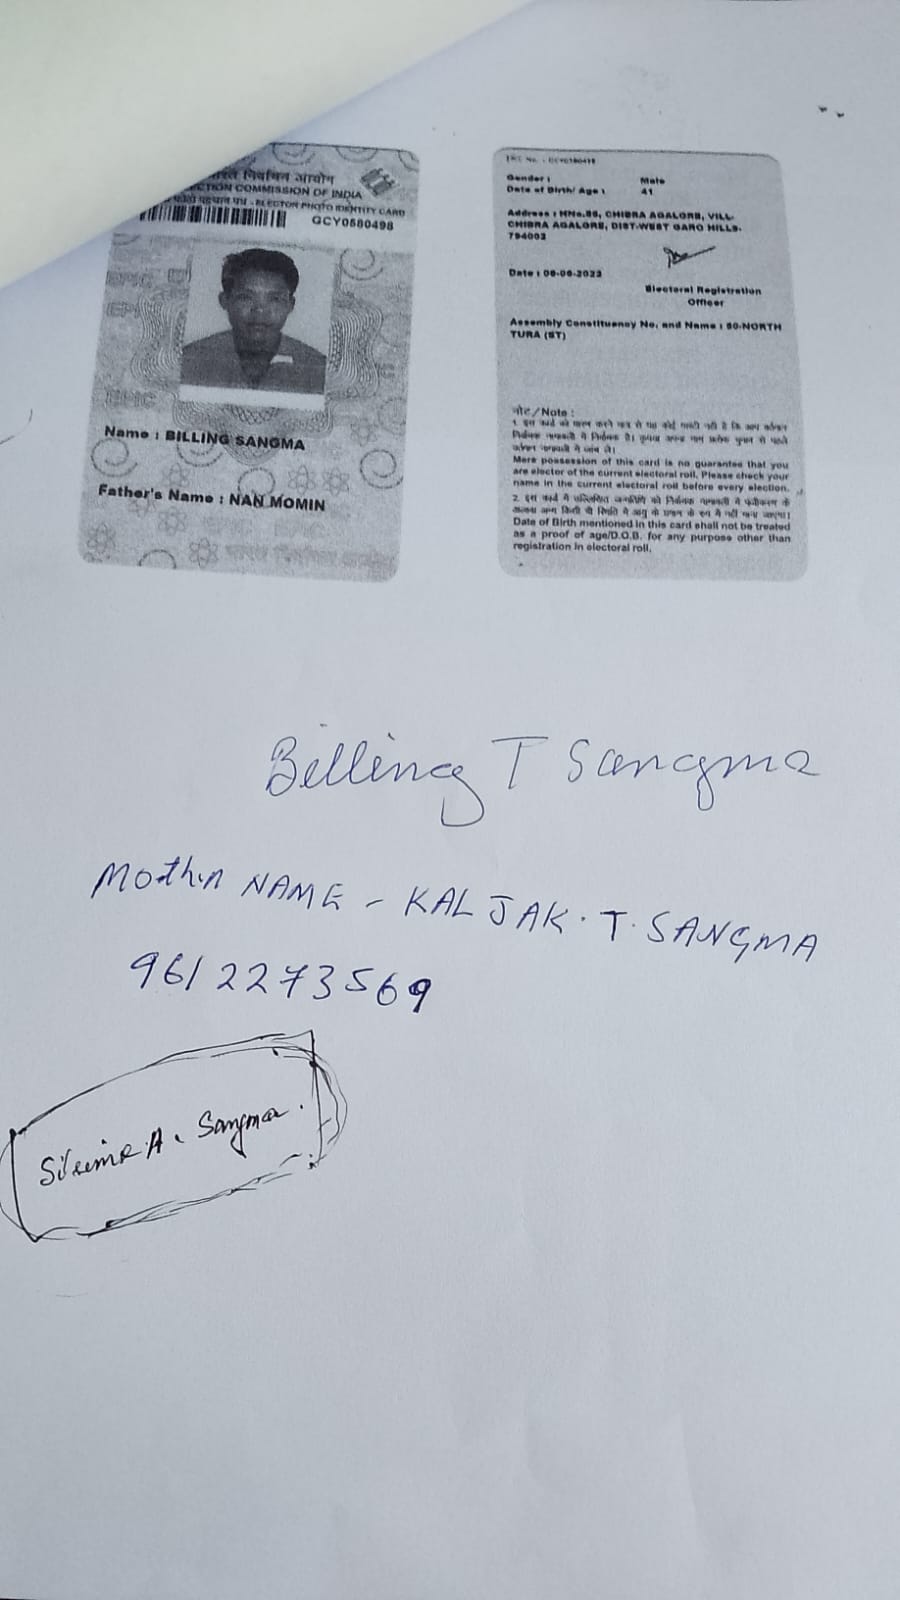 भारत निर्वाचन आयोग
ELECTION COMMISSION OF INDIA
पहचान पत्र - ELECTOR PHOTO IDENTITY CARD
GCY0580498
Name : BILLING SANGMA
Father's Name : NAN MOMIN
Gender : Male
Date of Birth/ Age : 41
Address : HNo.86, CHIBRA AGALGRE, VILL-
CHIBRA AGALGRE, DIST-WEST GARO HILLS-
794002
Electoral Registration
Officer
Assembly Constituency No. and Name : 50-NORTH
TURA (ST)
नोट/Note :
Mere possession of this card is no guarantee that you
are elector of the current electoral roll. Please check your
name in the current electoral roll before every election.
Date of Birth mentioned in this card shall not be treated
as a proof of age/D.O.B. for any purpose other than
registration in electoral roll.
Billing T Sangma
NAME - KAL JAK. T. SANGMA
9612273569
A. Sangma.